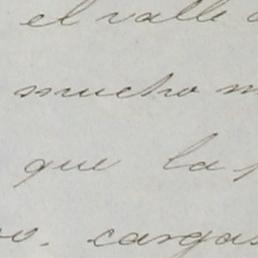 el valle
mucho
que la
cargas